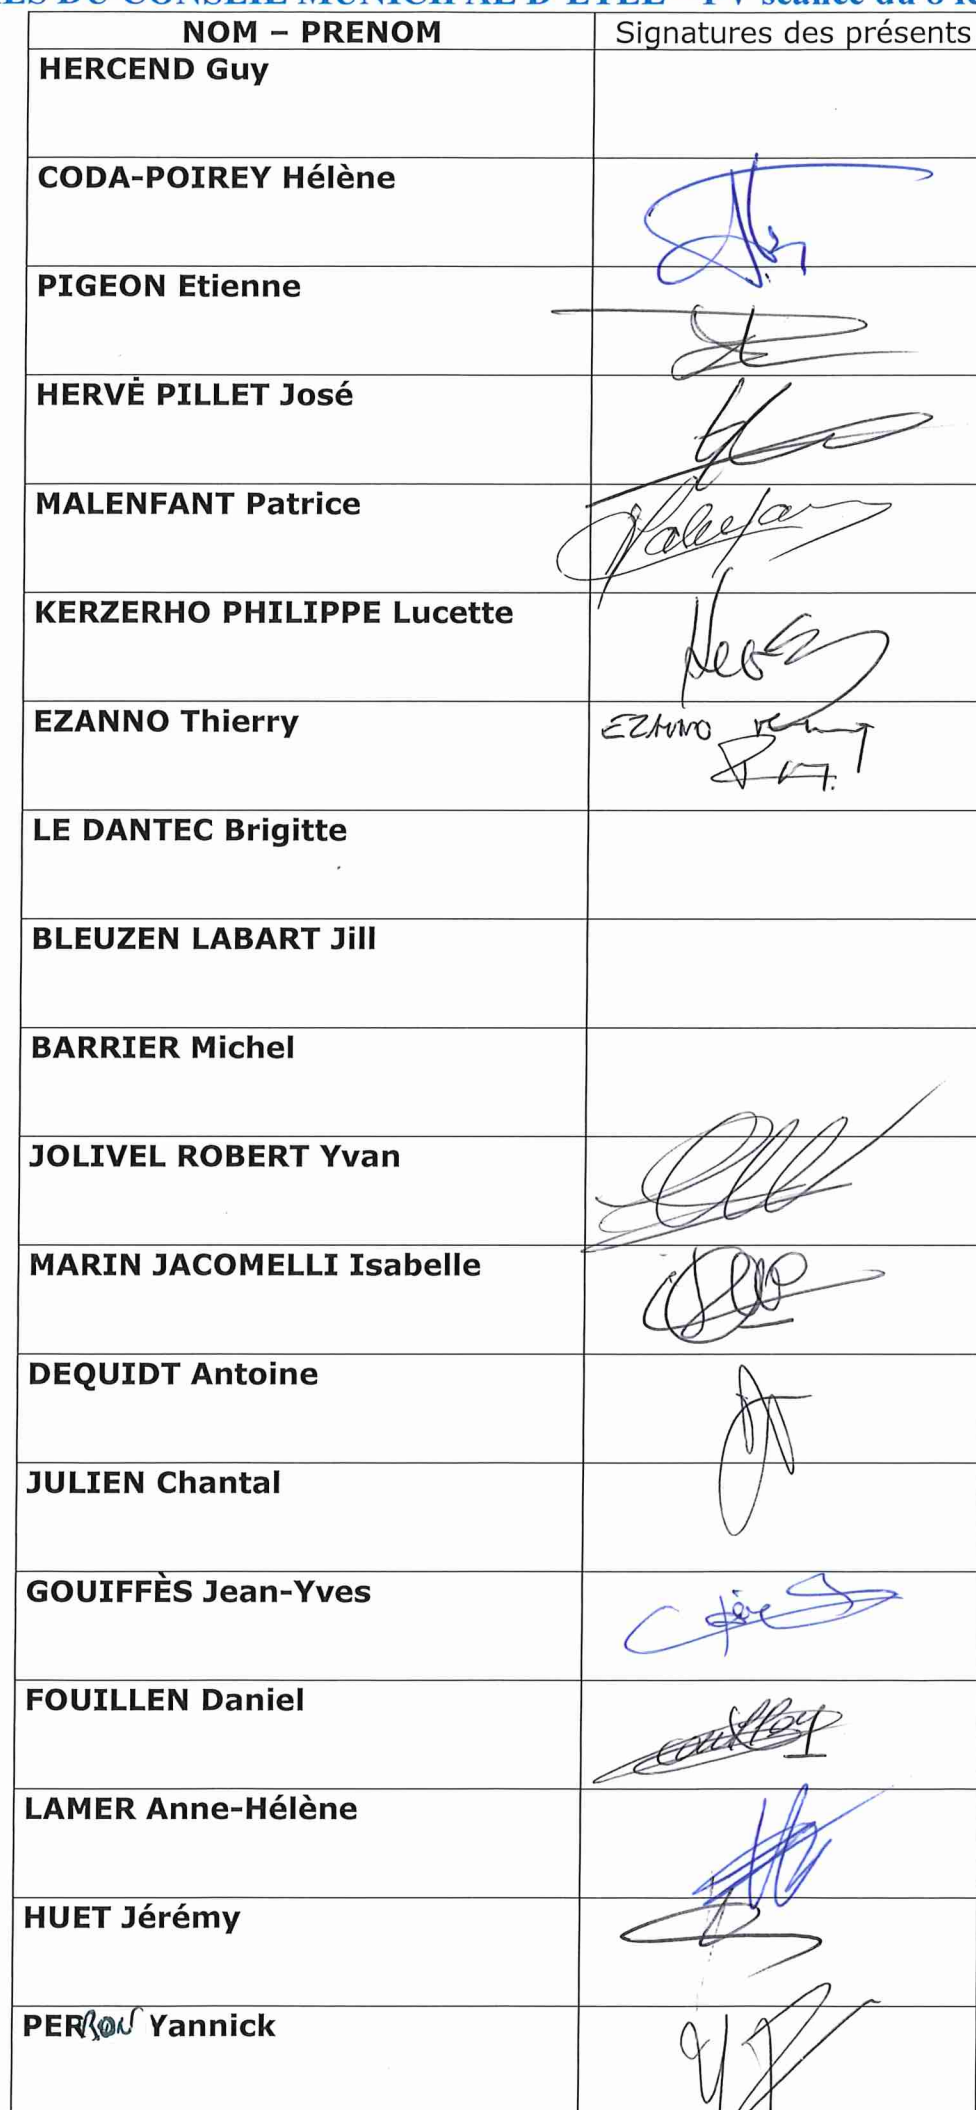 DU CONSEIL MUNICIPAL D'ETEL - PV séance du 8
NOM – PRENOM
Signatures des présents
HERCEND Guy
CODA-POIREY Hélène
PIGEON Etienne
HERVÉ PILLET José
MALENFANT Patrice
KERZERHO PHILIPPE Lucette
EZANNO Thierry
EZANNO
LE DANTEC Brigitte
BLEUZEN LABART Jill
BARRIER Michel
JOLIVEL ROBERT Yvan
MARIN JACOMELLI Isabelle
DEQUIDT Antoine
JULIEN Chantal
GOUIFFÈS Jean-Yves
FOUILLEN Daniel
LAMER Anne-Hélène
HUET Jérémy
PERRON Yannick